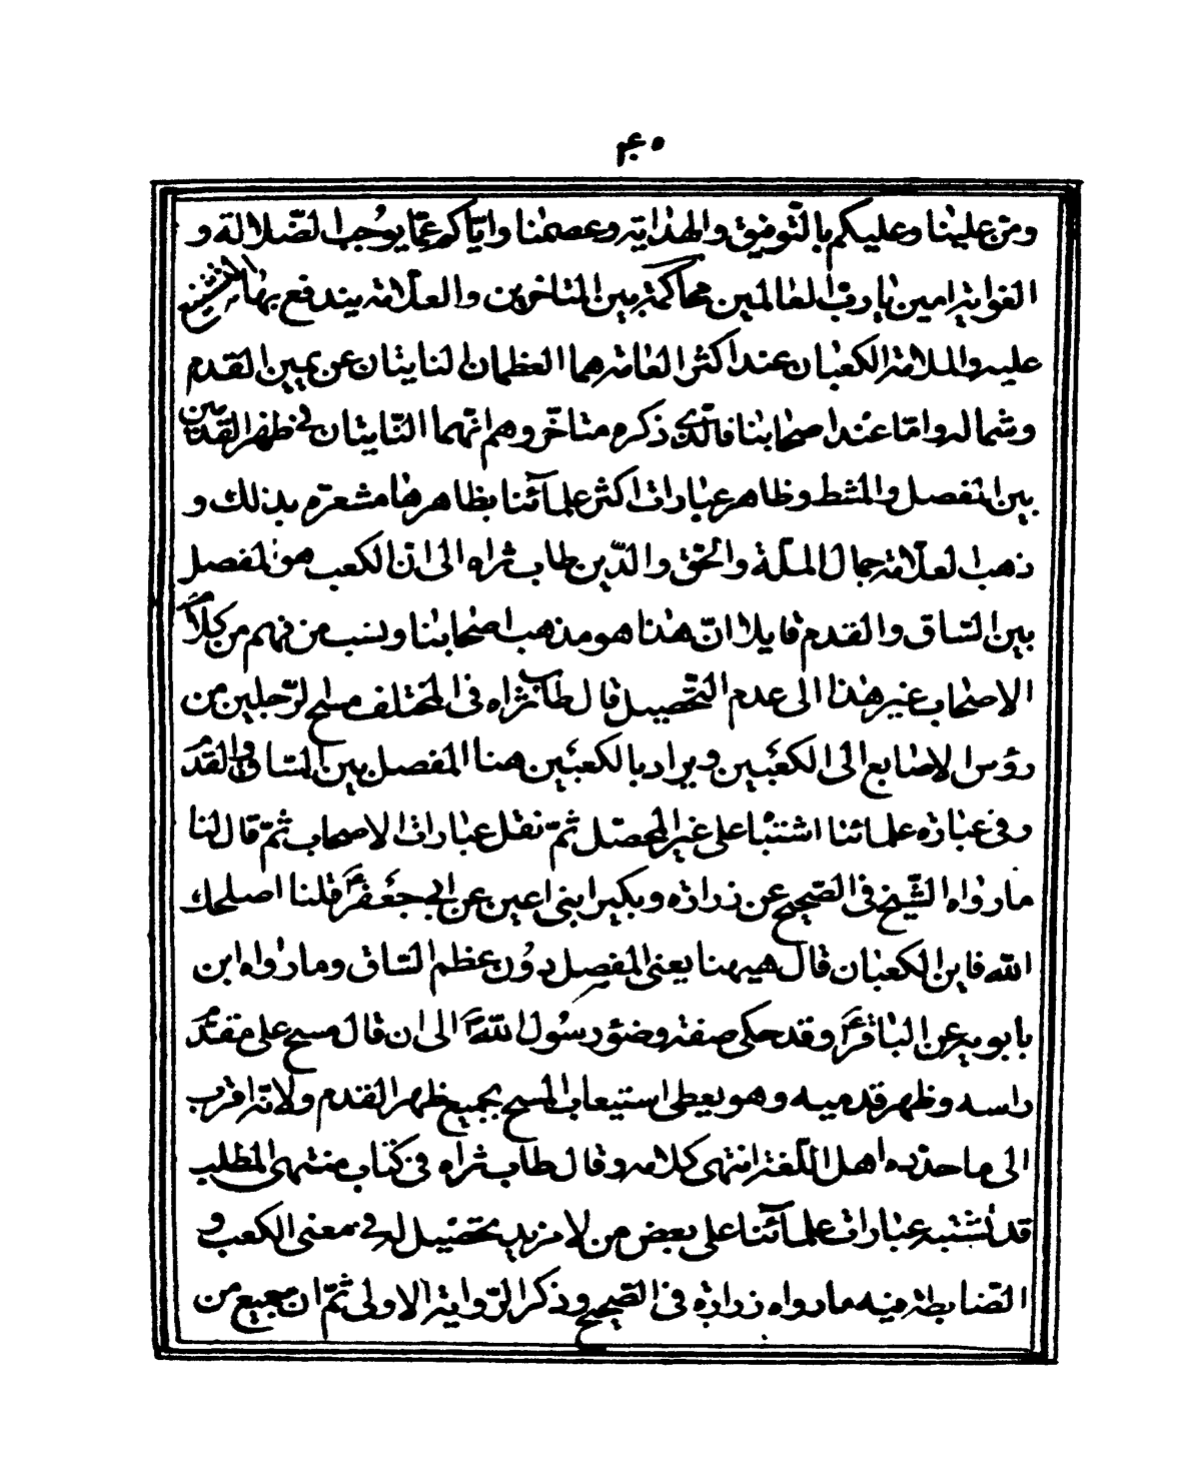 ۴۰
ومنّ علينا وعليكم بالتّوفيق والهداية وعصمنا وايّاكم عمّا يوجب الضّلالة و
الغواية امين يا ربّ العالمين محاكمة بين المتاخرين والعلّامة يندفع بها التشنيع
عليه والملامة الكعبان عند اكثر العامة هما العظمان النابتان عن يمين القدم
وشماله وامّا عند اصحابنا فالّذى ذكره متاخّروهم انّهما النّابتان فى ظهر القدمين
بين المفصل والمشط وظاهر عبارات اكثر علمآئنا بظاهرها مشعرة بذلك و
ذهب العلّامة جمال الملّة والحقّ والدّين طاب ثراه الى انّ الكعب هو المفصل
بين السّاق والقدم قايلا انّ هذا هو مذهب اصحابنا ونسب من فهم من كلام
الاصحاب غير هذا الى عدم التّحصيل قال طاب ثراه فى المختلف مسح الرّجلين من
رؤس الاصابع الى الكعبين ويراد بالكعبين هنا المفصل بين السّاق والقدم
وفى عبارة علمائنا اشتباه على غير المحصّل ثمّ نقل عبارات الاصحاب ثمّ قال لنا
ما رواه الشّيخ فى الصّحيح عن زرارة وبكير ابنى اعين عن ابى جعفر ع قلنا اصلحك
اللّه فاين الكعبان قال هيهنا يعنى المفصل دون عظم السّاق وما رواه ابن
بابويه عن الباقر ع وقد حكى صفة وضوء رسول اللّه ص الى ان قال مسح على مقدّم
راسه وظهر قدميه وهو يعطى استيعاب المسح بجميع ظهر القدم ولانّه اقرب
الى ما حدّده اهل اللّغة انتهى كلامه وقال طاب ثراه فى كتاب منتهى المطلب
قد تشتبه عبارات علمآئنا على بعض من لا مزيد تحصيل له فى معنى الكعب و
الضّابط فيه ما رواه زرارة فى الصّحيح وذكر الرّواية الاولى ثمّ ان جميع من